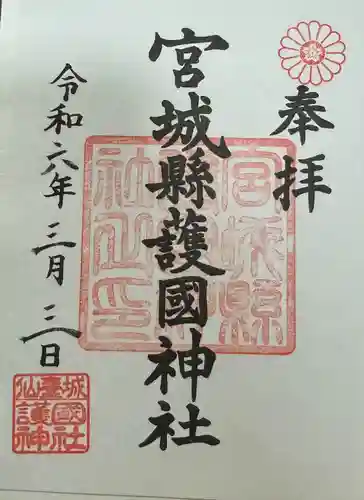 奉拝
宮城縣護國神社
令和六年三月三日
宮城縣
護國神
社之印
仙臺城
護國
神社